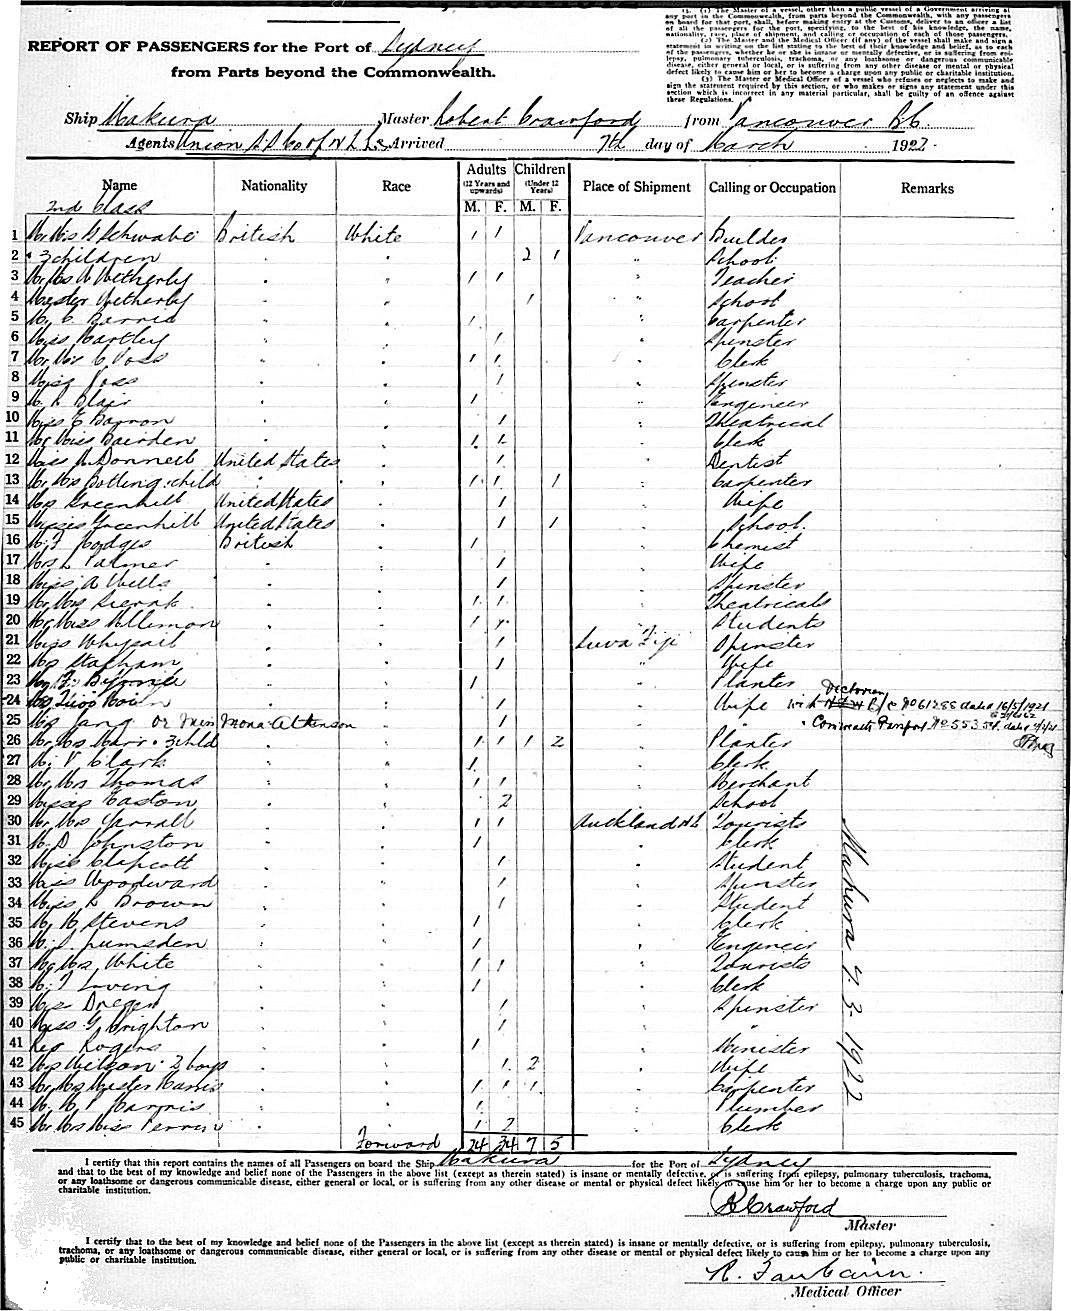 15. (1) The Master of a vessel, other than a public vessel of a Government arriving at
any port in the Commonwealth, from parts beyond the Commonwealth, with any passengers
on board for that port, shall, before making entry at the Customs, deliver to an officer a list
of all the passengers for the port, specifying, to the best of his knowledge, the name,
nationality, race, place of shipment, and calling or occupation of each of those passengers.
(2) The Master and the Medical Officer (if any) of the vessel shall make and sign a
statement in writing on the list stating to the best of their knowledge and belief, as to each
of the passengers, whether he or she is insane or mentally defective, or is suffering from epi-
lepsy, pulmonary tuberculosis, trachoma, or any loathsome or dangerous communicable
disease, either general or local, or is suffering from any other disease or mental or physical
defect likely to cause him or her to become a charge upon any public or charitable institution.
(3) The Master or Medical Officer of a vessel who refuses or neglects to make and
sign the statement required by this section, or who makes or signs any statement under this
section which is incorrect in any material particular, shall be guilty of an offence against
these Regulations.
REPORT OF PASSENGERS for the Port of Sydney
from Parts beyond the Commonwealth.
Ship Makura Master Robert Crawford from Vancouver B.C.
Agents Union S.S. Co of N.Z. Ltd Arrived 7th day of March 1922.
Name Nationality Race Adults (12 Years and upwards) M. F. Children (Under 12 Years) M. F. Place of Shipment Calling or Occupation Remarks
2nd Class
1 Mr Mrs G Schwabe British White 1 1 Vancouver Builder
2 " 3 children 2 1 School
3 Mr Mrs W Wetherly 1 1 Teacher
4 Master Wetherly 1 School
5 Mr C. 1 Carpenter
6 Miss Hartley 1 Spinster
7 Mr Mrs C Voss 1 1 Clerk
8 Miss Voss 1 Spinster
9 Mr R Blair 1 Engineer
10 Miss E Barron 1 Theatrical
11 Mr Miss Bairden 1 1 Clerk
12 Miss Donnell United States 1 Dentist
13 Mr Mrs Botting child 1 1 1 Carpenter
14 Mrs Greenhill United States 1 Wife
15 Misses Greenhill United States 1 1 School.
16 Mr F Hodges British 1 Chemist
17 Mrs L Palmer 1 Wife
18 Miss A Wells 1 Spinster
19 Mr Mrs 1 1 Theatricals
20 Mr Miss 1 1 Students
21 Miss Whysall 1 Suva Fiji Spinster
22 Mrs Statham 1 Wife
23 Mr F. 1 Planter
24 Mrs 1 Wife with Victorian B/C No 61288 dated 16/5/1921
25 Mrs Jang or Miss Mona Atkinson 1 " Commwealth Passport No 55354 dated
26 Mr Mrs Marr 3 child 1 1 1 2 Planter
27 Mr V Clark 1 Clerk
28 Mr Mrs Thomas 1 1 Merchant
29 Misses Easton 2 School
30 Mr Mrs Yarrall 1 1 Auckland N.Z. Tourists
31 Mr D Johnston 1 Clerk
32 Miss Clapcott 1 Student
33 Miss Woodward 1 Spinster
34 Miss L Brown 1 Student
35 Mr H Stevens 1 Clerk
36 Mr S Lumsden 1 Engineer
37 Mr Mrs White 1 1 Tourists
38 Mr T Loving 1 Clerk
39 Miss 1 Spinster
40 Miss G Brighton 1 "
41 Rev Rogers 1 Minister
42 Mrs Wilson 2 boys 1 2 Wife
43 Mr Mrs Master Harris 1 1 1 Carpenter
44 Mr W. Harris 1 Plumber
45 Mr Mrs Miss Perrin 1 2 Clerk
Makura 7.3.1922
Forward 24 34 7 5
I certify that this report contains the names of all Passengers on board the Ship Makura for the Port of Sydney
and that to the best of my knowledge and belief none of the Passengers in the above list (except as therein stated) is insane or mentally defective, or is suffering from epilepsy, pulmonary tuberculosis, trachoma,
or any loathsome or dangerous communicable disease, either general or local, or is suffering from any other disease or mental or physical defect likely to cause him or her to become a charge upon any public or
charitable institution.
R Crawford
Master
I certify that to the best of my knowledge and belief none of the Passengers in the above list (except as therein stated) is insane or mentally defective, or is suffering from epilepsy, pulmonary tuberculosis,
trachoma, or any loathsome or dangerous communicable disease, either general or local, or is suffering from any other disease or mental or physical defect likely to cause him or her to become a charge upon any
public or charitable institution.
Medical Officer